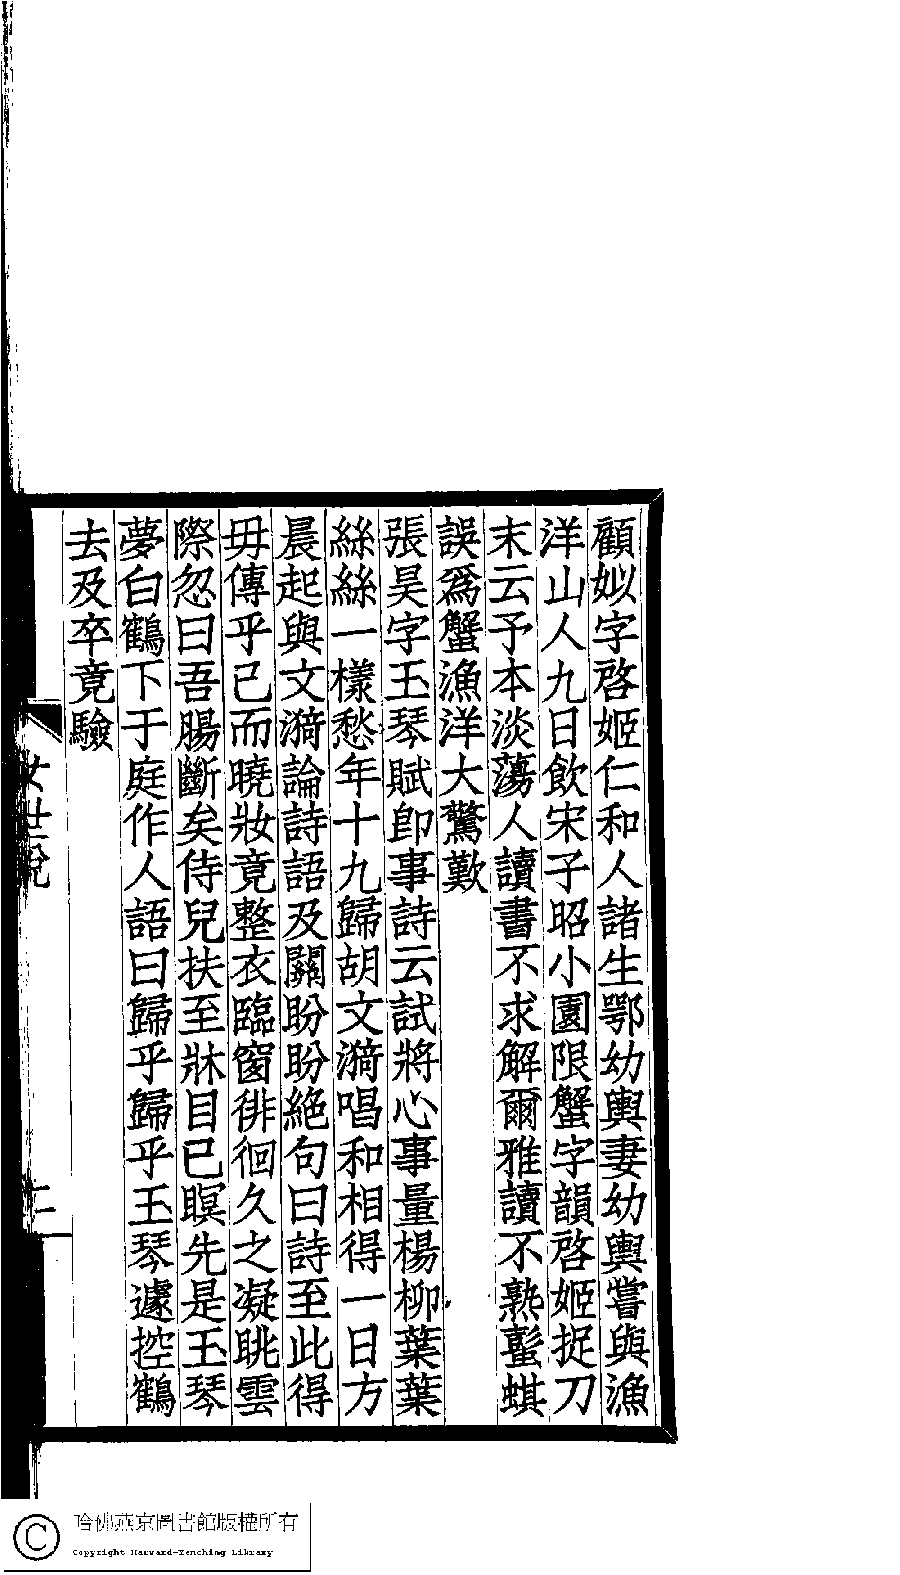 顧姒字啓姬仁和人諸生鄂幼輿妻幼輿嘗與漁
洋山人九日飲宋子昭小園限蟹字韻啓姬捉刀
末云予本淡蕩人讀書不求解爾雅讀不熟蟚蜞
誤爲蟹漁洋大驚歎
張昊字玉琴賦卽事詩云試將心事量楊柳葉葉
絲絲一樣愁年十九歸胡文漪唱和相得一日方
晨起與文漪論詩語及關盼盼絶句曰詩至此得
毋傳乎已而曉妝竟整衣臨窗徘徊久之凝眺雲
際忽曰吾腸斷矣侍兒扶至牀目已瞑先是玉琴
夢白鶴下于庭作人語曰歸乎歸乎玉琴遽控鶴
去及卒竟驗
女世說
哈佛燕京圖書館版權所有
Copyright Harvard-Yenching Library